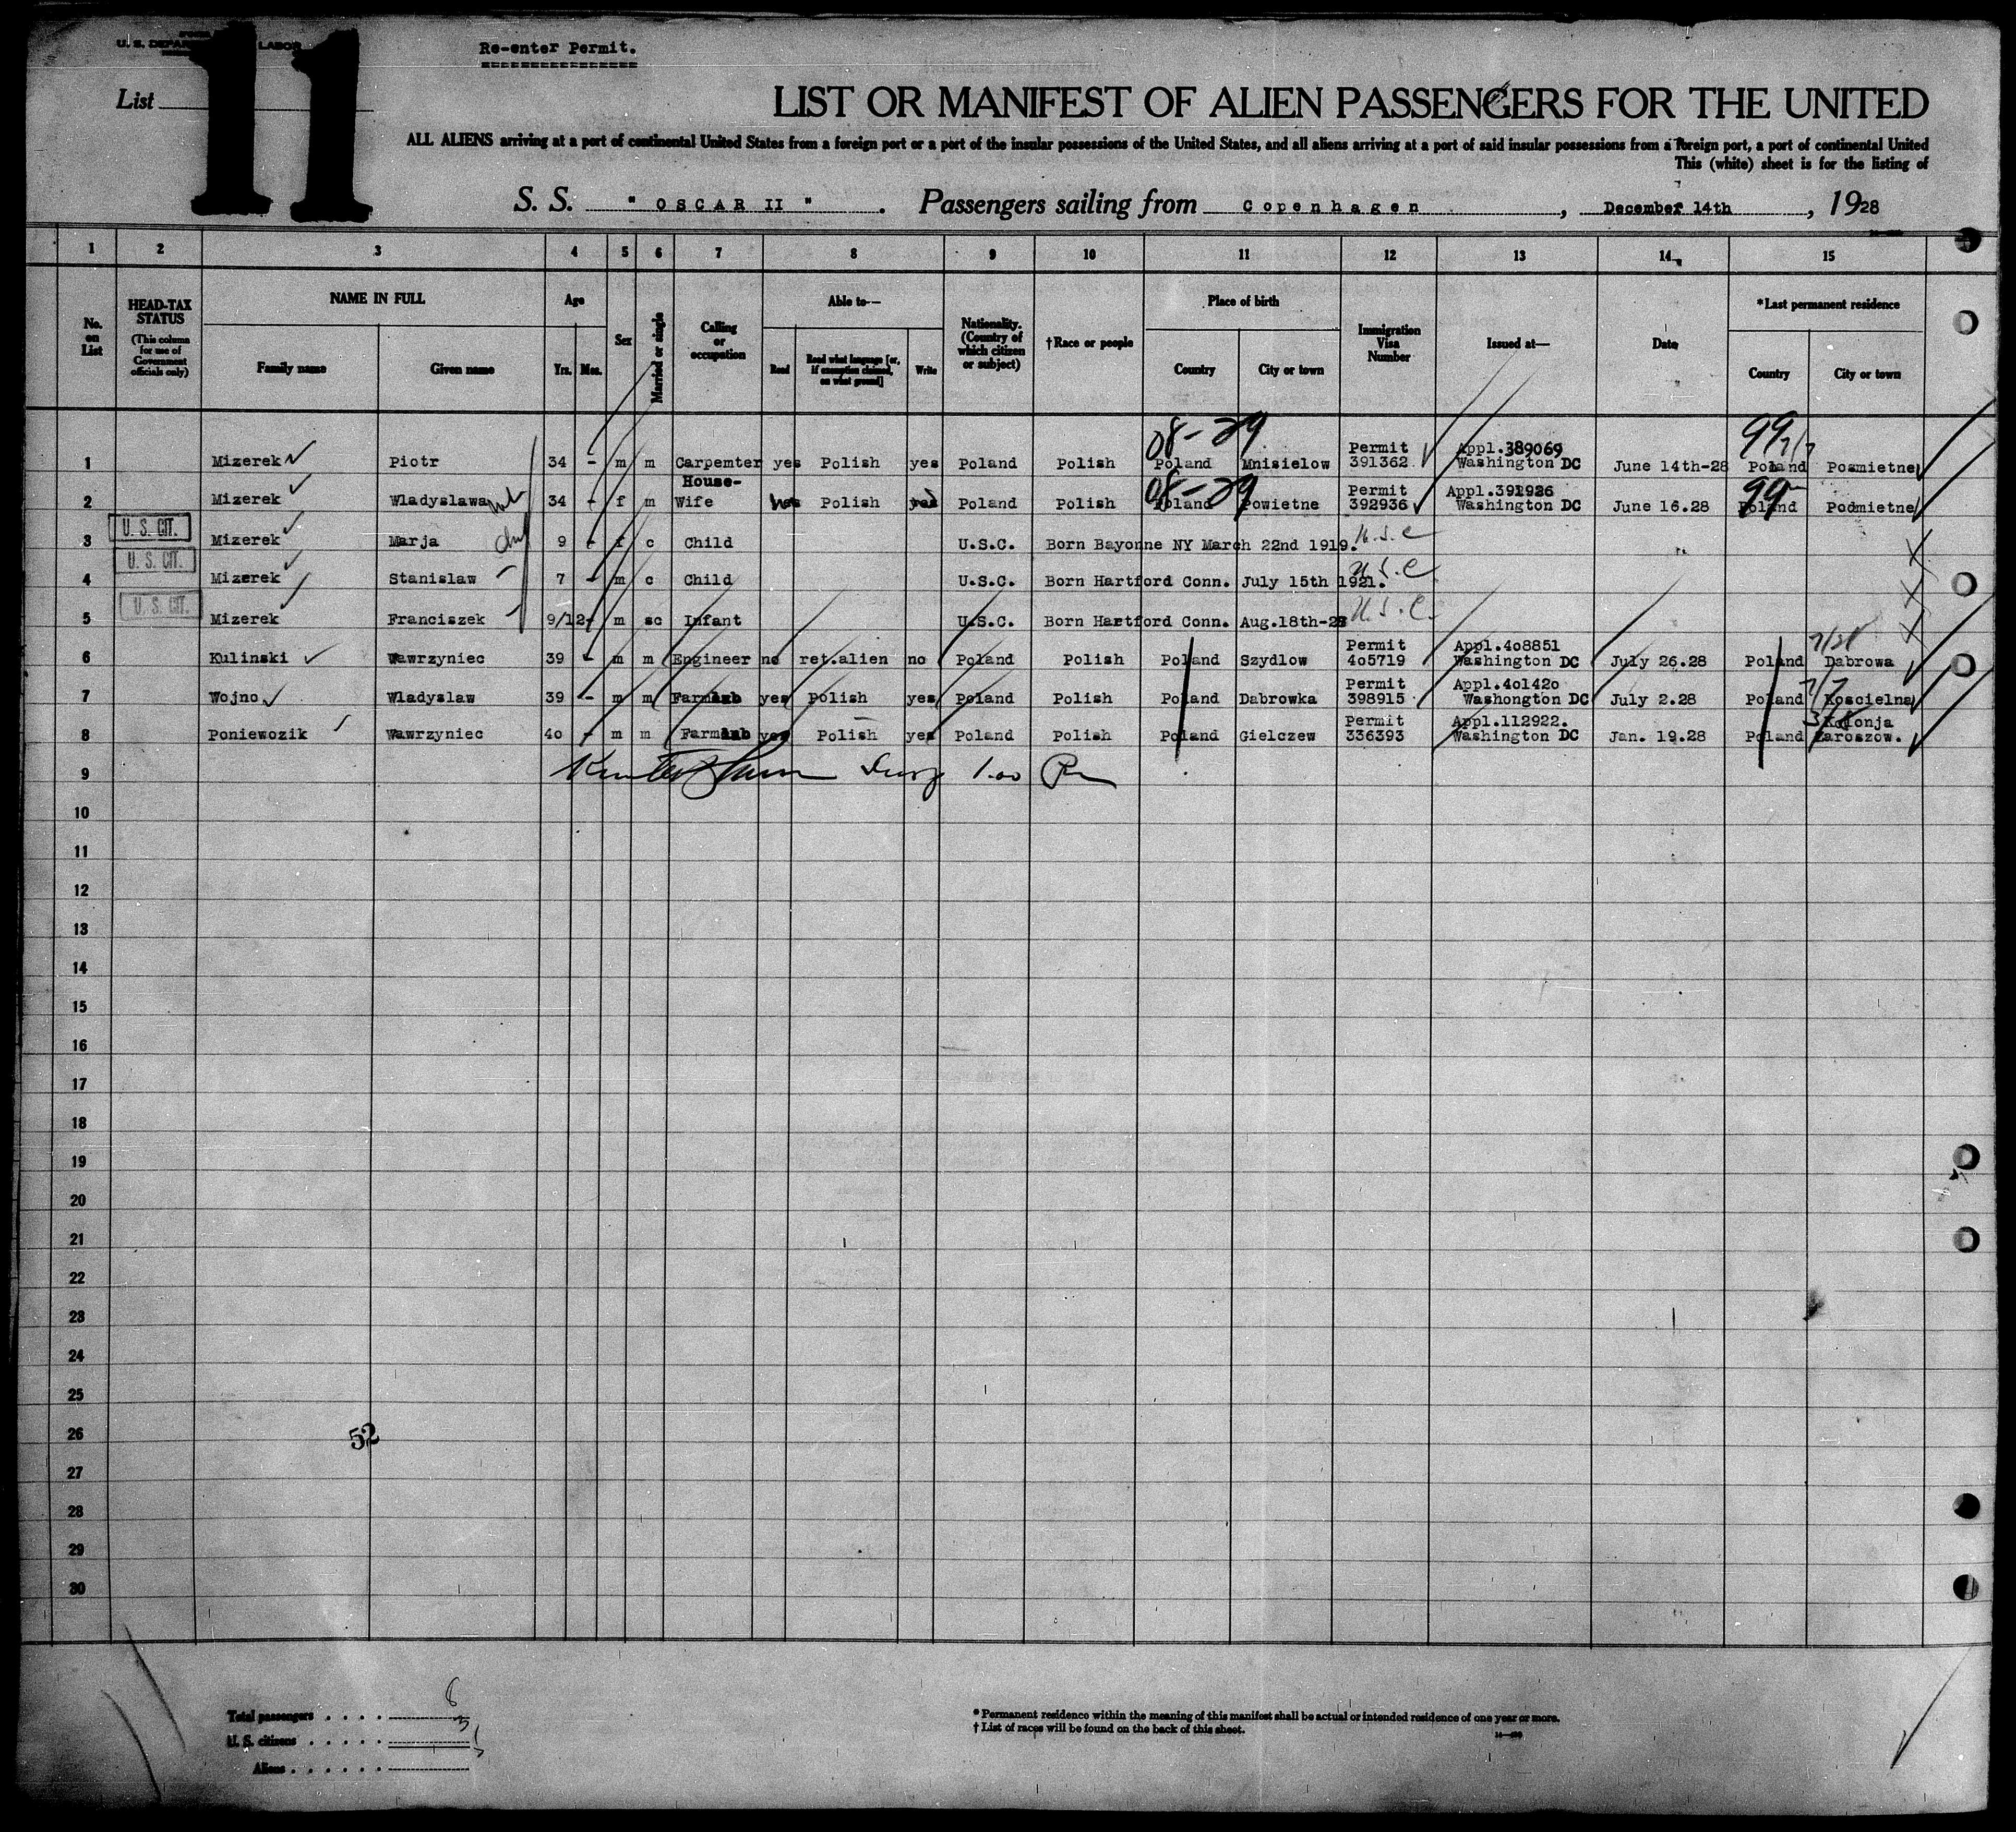 U. S. DEPARTMENT OF LABOR
Re-enter Permit.
List 11
LIST OR MANIFEST OF ALIEN PASSENGERS FOR THE UNITED
ALL ALIENS arriving at a port of continental United States from a foreign port or a port of the insular possessions of the United States, and all aliens arriving at a port of said insular possessions from a foreign port, a port of continental United
This (white) sheet is for the listing of
S. S. " OSCAR II ". Passengers sailing from Copenhagen, December 14th, 1928
1 2 3 4 5 6 7 8 9 10 11 12 13 14 15
No. on List
HEAD-TAX STATUS (This column for use of Government officials only)
NAME IN FULL Family name Given name
Age Yrs. Mos.
Sex
Married or single
Calling or occupation
Able to— Read Read what language [or, if exemption claimed, on what ground] Write
Nationality. (Country of which citizen or subject)
†Race or people
Place of birth Country City or town
Immigration Visa Number
Issued at—
Date
*Last permanent residence Country City or town
08-29 99 7/7
1 Mizerek Piotr 34 - m m Carpemter yes Polish yes Poland Polish Poland Mnisielow Permit 391362 Appl.389069 Washington DC June 14th-28 Poland Posmietne
2 Mizerek Wladyslawa 34 - f m House-Wife yes Polish yes Poland Polish 08-29 Poland Powietne Permit 392936 Appl.391926 Washington DC June 16.28 99 Poland Podmietne
3 U. S. CIT. Mizerek Marja 9 - f c Child U.S.C. Born Bayonne NY March 22nd 1919. U.S.C
4 U. S. CIT. Mizerek Stanislaw 7 - m c Child U.S.C. Born Hartford Conn. July 15th 1921. U.S.C
5 U. S. CIT. Mizerek Franciszek 9/12- m sc Infant U.S.C. Born Hartford Conn. Aug.18th-28 U.S.C.
6 Kulinski Wawrzyniec 39 - m m Engineer no ret.alien no Poland Polish Poland Szydlow Permit 405719 Appl.408851 Washington DC July 26.28 Poland Dabrowa
7 Wojno Wladyslaw 39 - m m Farmlab yes Polish yes Poland Polish Poland Dabrowka Permit 398915 Appl.401420 Washongton DC July 2.28 Poland Koscielna
8 Poniewozik Wawrzyniec 40 - m m Farmlab yes Polish yes Poland Polish Poland Gielczew Permit 336393 Appl.112922. Washington DC Jan. 19.28 Poland Kolonja Zaroszow.
9 Surg 1.00
10
11
12
13
14
15
16
17
18
19
20
21
22
23
24
25
26
52
27
28
29
30
Total passengers . . . . 8
U. S. citizens . . . . . 3
Aliens . . . . . . 5
* Permanent residence within the meaning of this manifest shall be actual or intended residence of one year or more.
† List of races will be found on the back of this sheet.